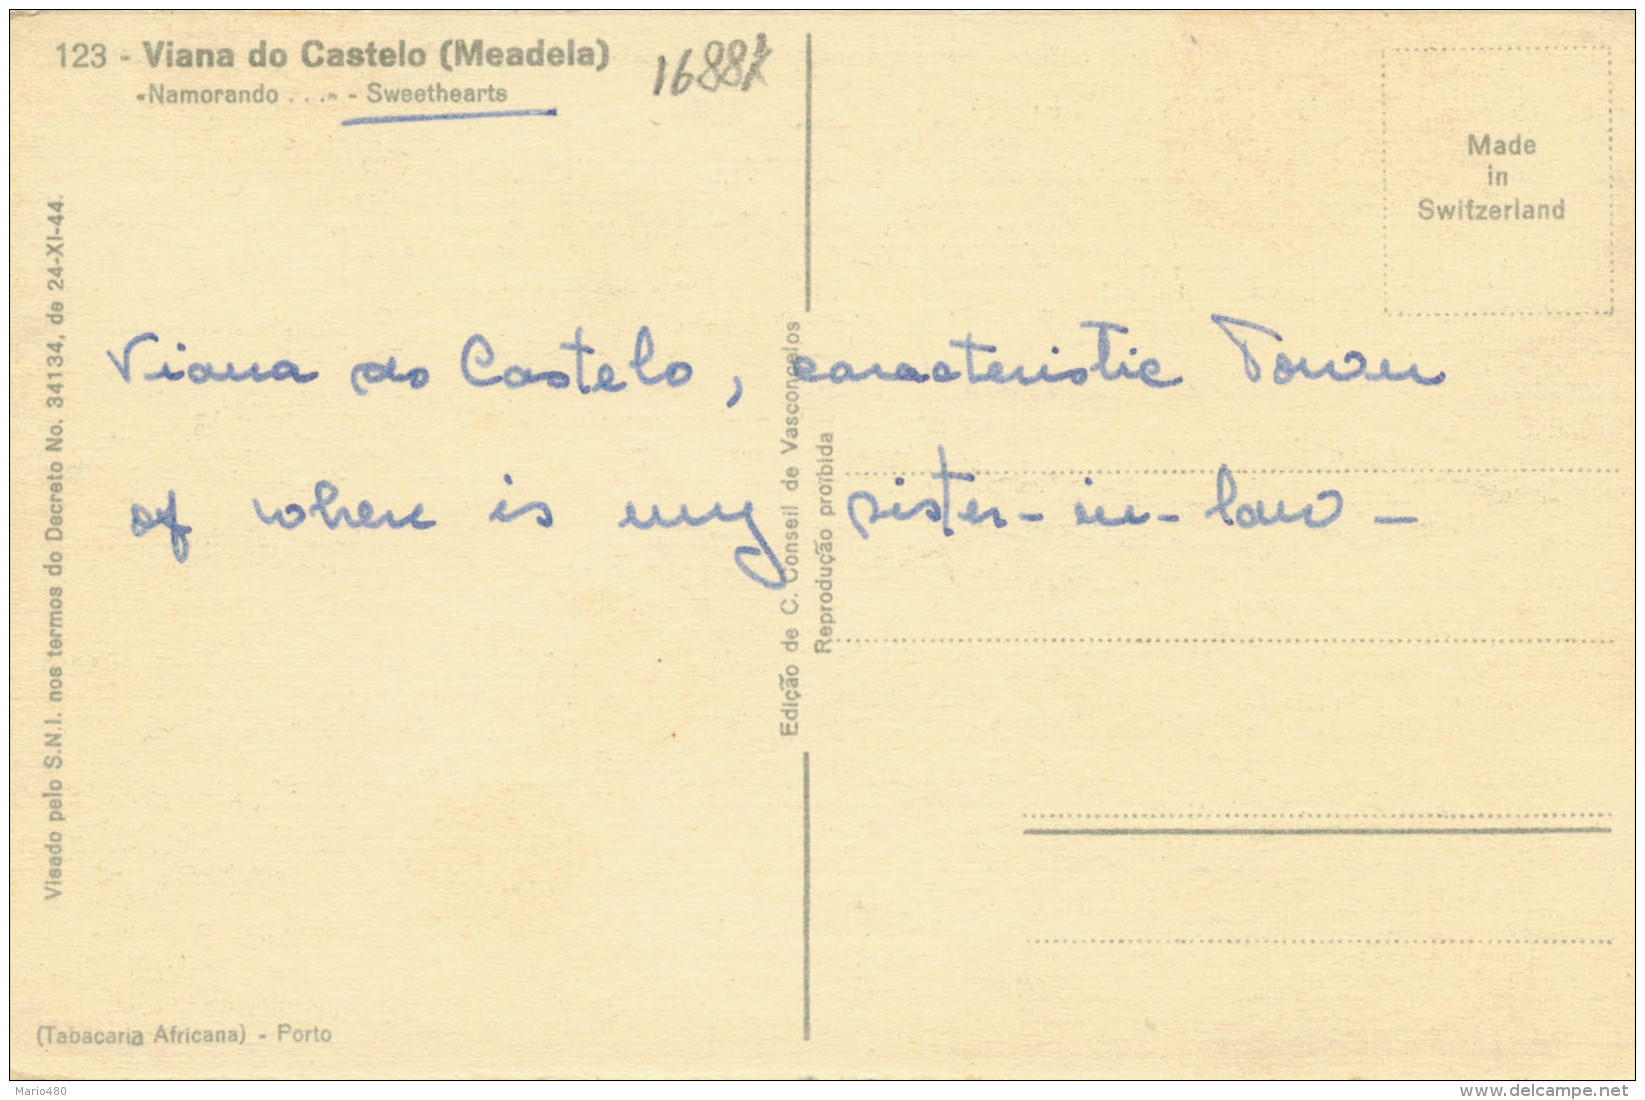 123 - Viana do Castelo (Meadela)
«Namorando . . .» - Sweethearts
Made
in
Switzerland
Visado pelo S.N.I. nos termos do Decreto No. 34134, de 24-XI-44.
Viana do Castelo, caracteristic Town
of where is my sister-in-law -
Edição de C. Conseil de Vasconcelos
Reprodução proïbida
(Tabacaria Africana) - Porto
Mario480
www.delcampe.net